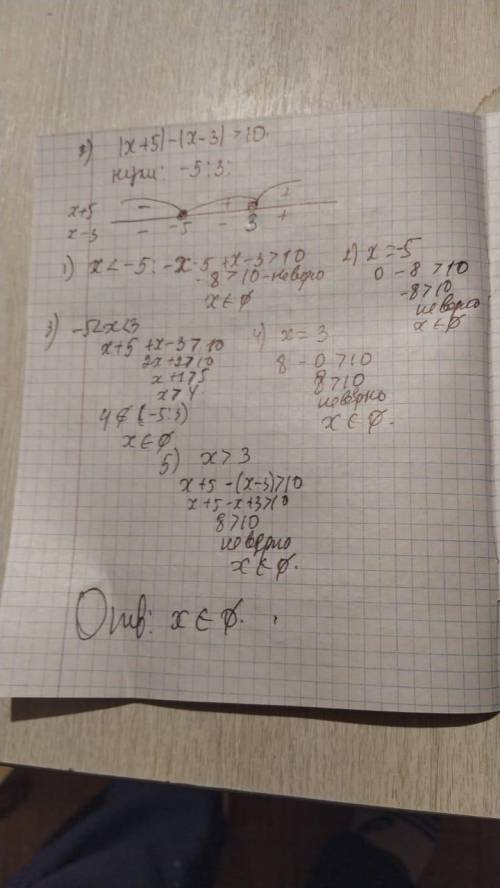 |x+5|-|x-3|>10.
нули: -5; 3;
x+5 - + +
-5 3
x-3 - - +
1) x<-5: -x-5+x-3>10
-8>10-неверно
x∈∅
2) x=-5
0-8>10
-8>10
неверно
x∈∅
3) -5<x<3
x+5+x-3>10
2x+2>10
x+1>5
x>4
4∉(-5;3)
x∈∅
4) x=3
8-0>10
8>10
неверно
x∈∅.
5) x>3
x+5-(x-3)>10
x+5-x+3>10
8>10
неверно
x∈∅.
Отв: x∈∅.